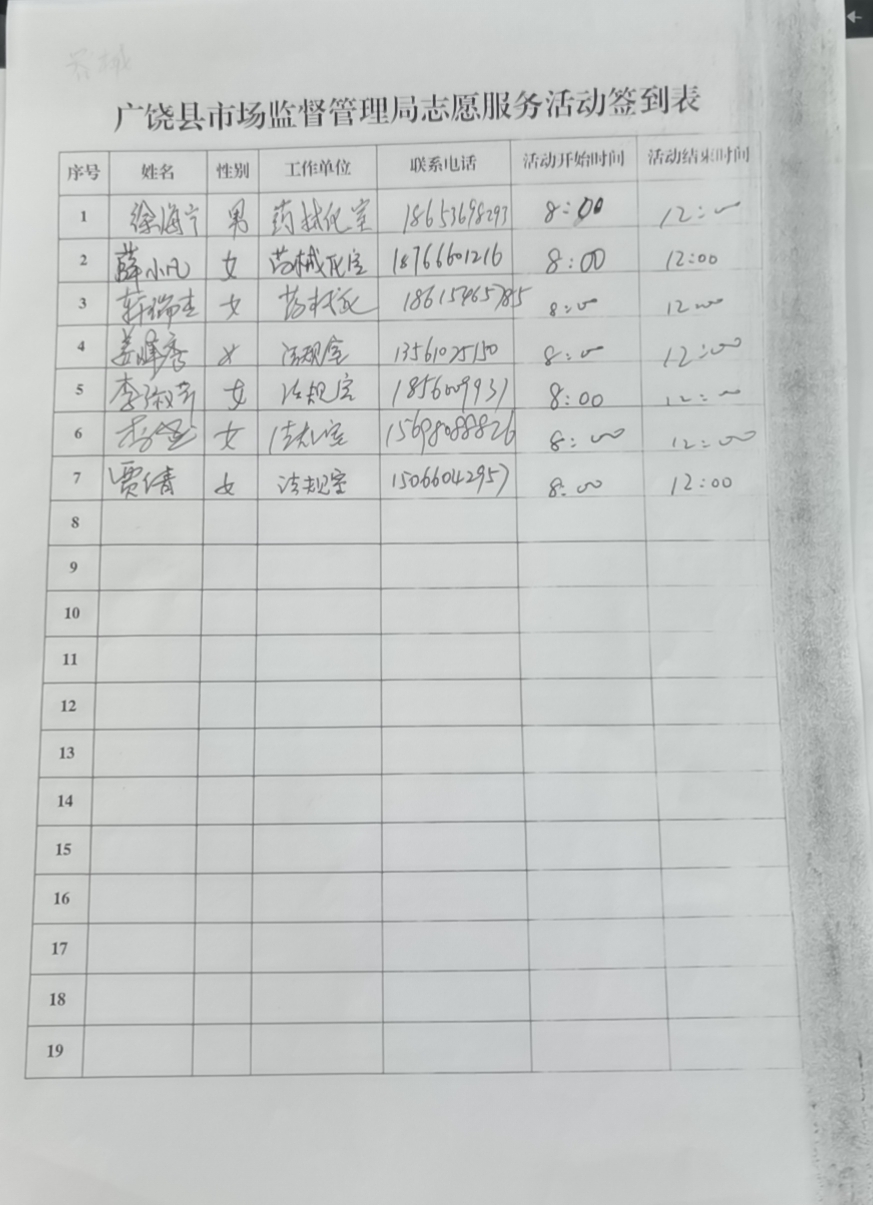 广饶县市场监督管理局志愿服务活动签到表
序号 姓名 性别 工作单位 联系电话 活动开始时间 活动结束时间
1 徐海宁 男 药械化室 18653698293 8:00 12:00
2 薛小凡 女 药械化室 18766601216 8:00 12:00
3 女 药械化 18615465785 8:00 12:00
4 女 法规室 13561025150 8:00 12:00
5 李淑芳 女 法规室 8:00 12:00
6 女 法规室 15698088826 8:00 12:00
7 贾倩 女 法规室 15066042957 8:00 12:00
8
9
10
11
12
13
14
15
16
17
18
19